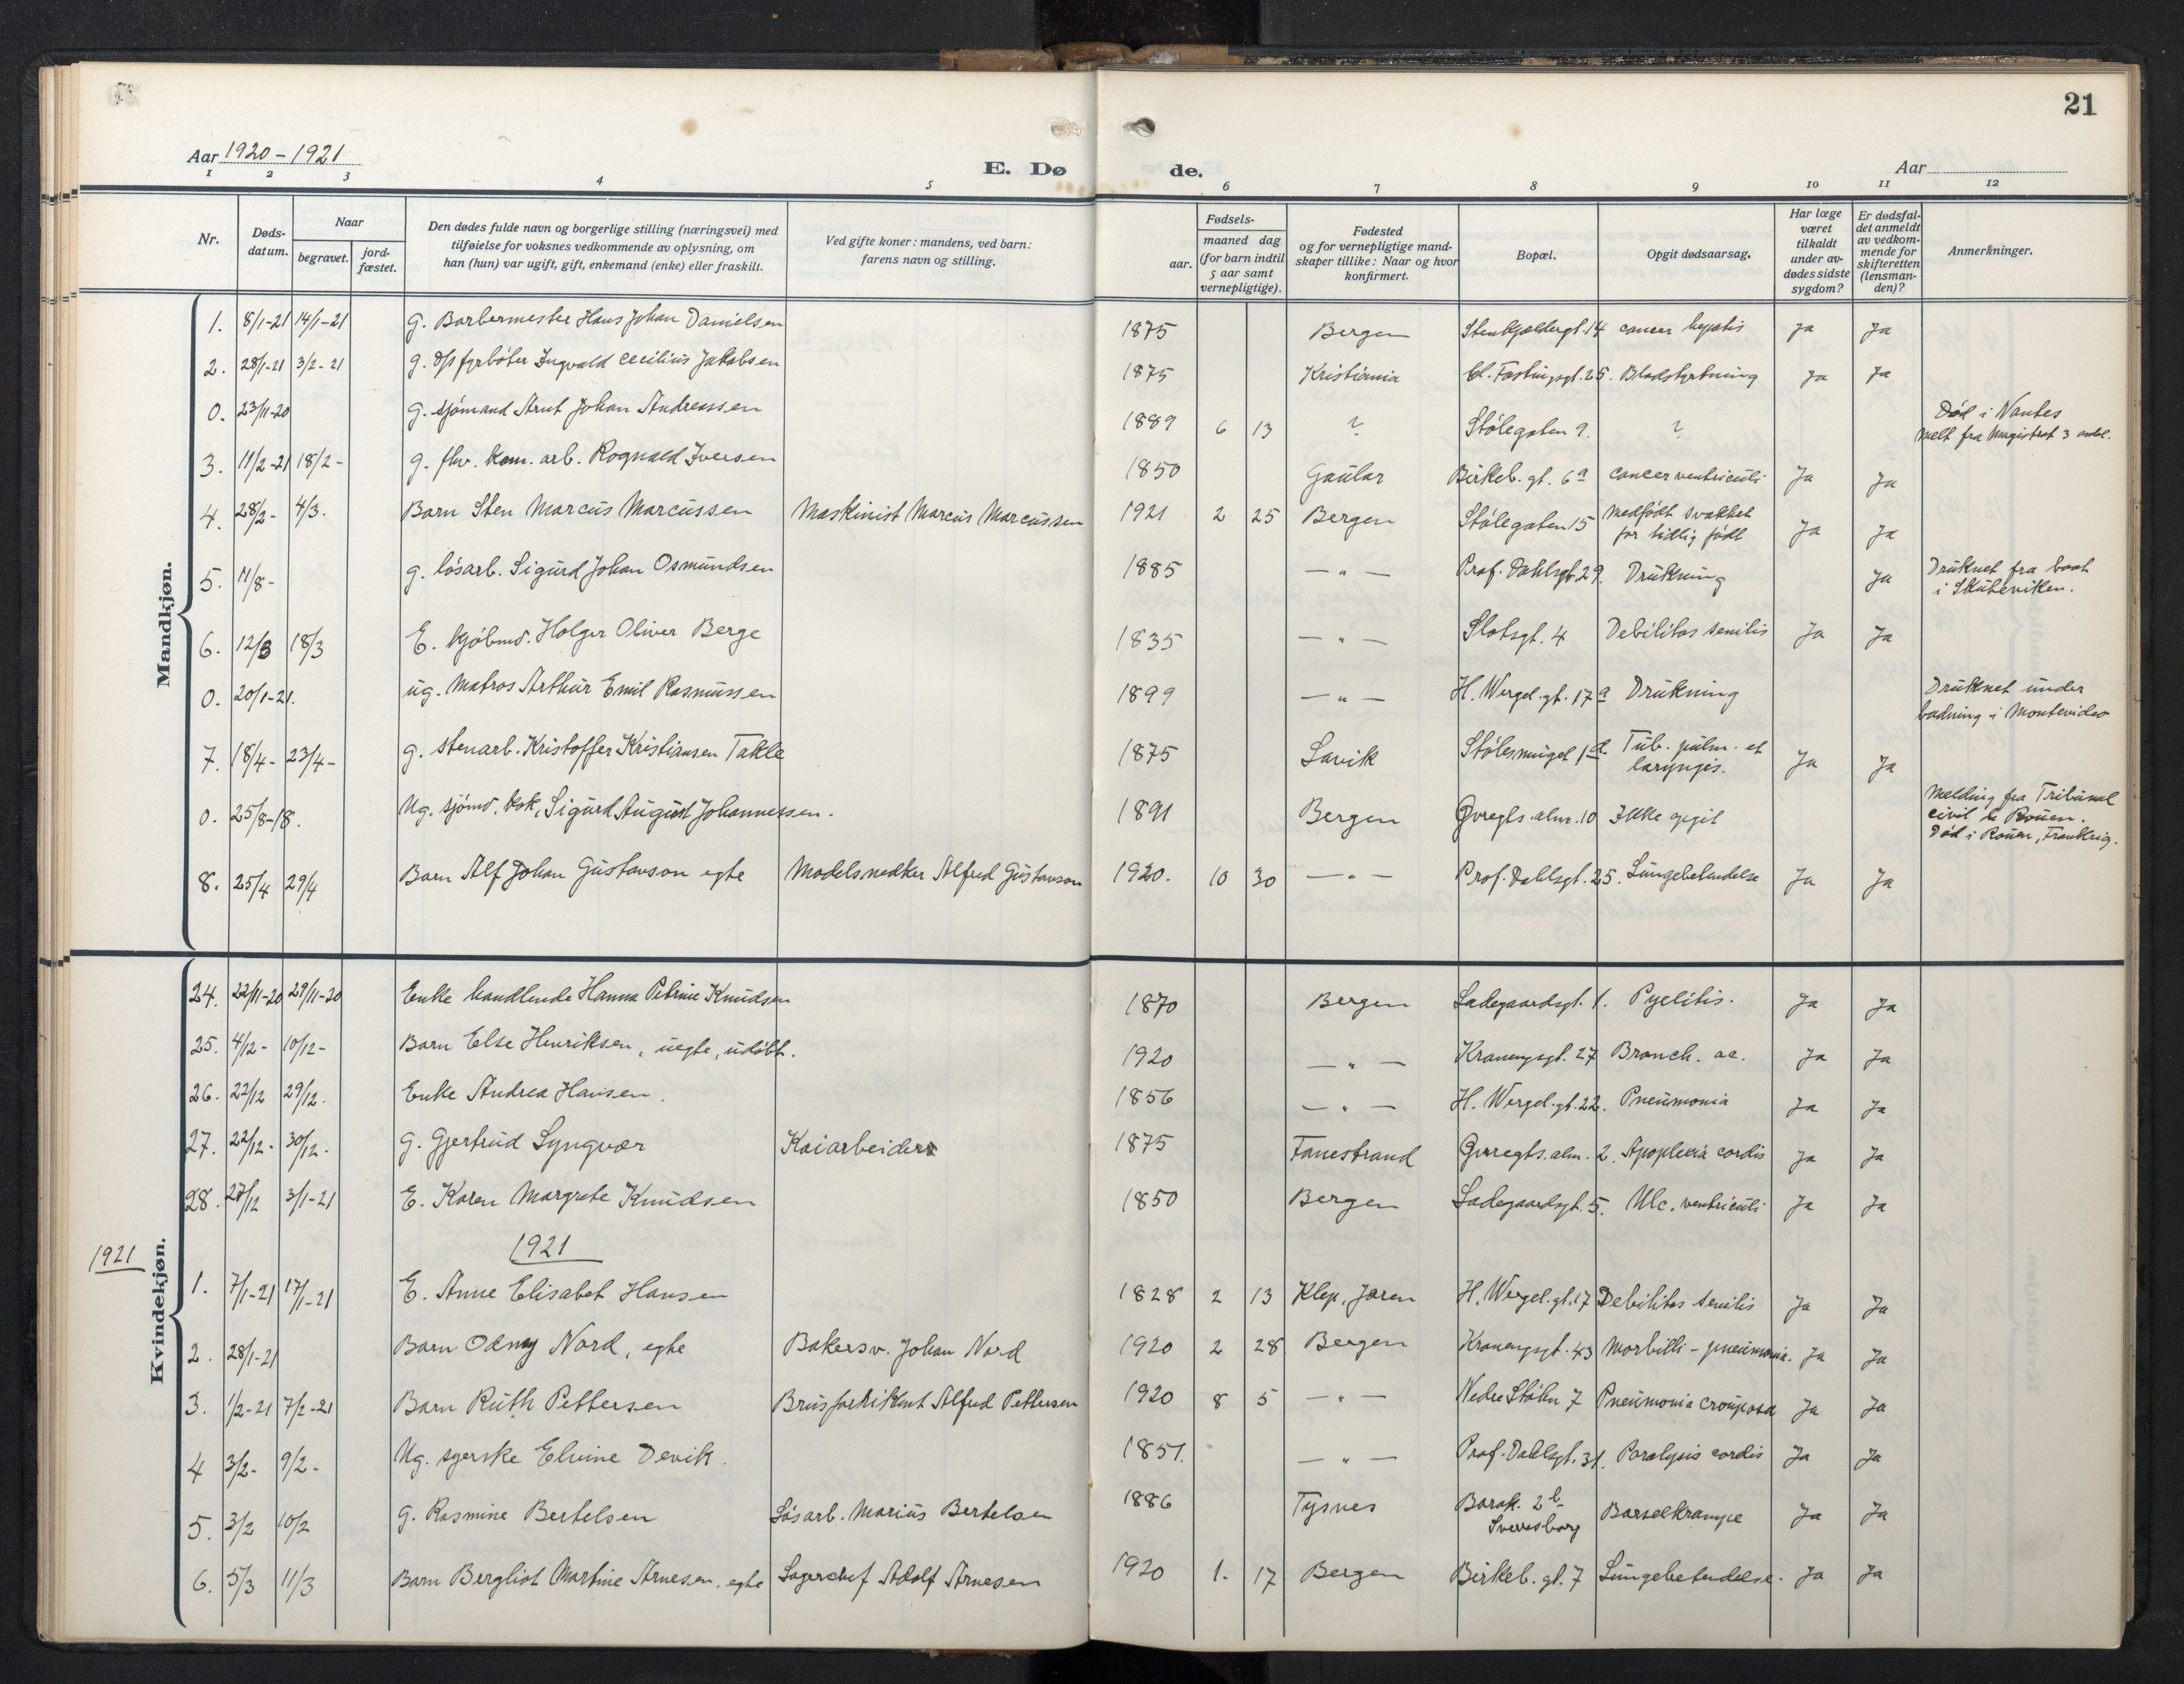 21
Aar 1920-1921
E. Dø de.
Aar
1 2 3 4 5 6 7 8 9 10 11 12
Nr.
Døds-datum.
Naar
begravet.
jord-fæstet.
Den dødes fulde navn og borgerlige stilling (næringsvei) med
tilføielse for voksnes vedkommende av oplysning, om
han (hun) var ugift, gift, enkemand (enke) eller fraskilt.
Ved gifte koner: mandens, ved barn:
farens navn og stilling.
Fødsels-
aar.
maaned dag
(for barn indtil
5 aar samt
vernepligtige).
Fødested
og for vernepligtige mand-
skaper tillike: Naar og hvor
konfirmert.
Bopæl.
Opgit dødsaarsag.
Har læge
været
tilkaldt
under av-
dødes sidste
sygdom?
Er dødsfal-
det anmeldt
av vedkom-
mende for
skifteretten
(lensman-
den)?
Anmerkninger.
Mandkjøn.
1. 8/1-21 14/1-21 G. Barbermester Hans Johan Danielsen 1875 Bergen Stenkjældergt. 14 cancer hepatis Ja Ja
2. 28/1-21 3/2-21 g. d/s fyrbøter Ingvald Cecilius Jakobsen 1875 Kristiania Cl. Fastingsgt. 25. Blodstyrtning Ja Ja
0. 23/11-20 g. sjømand Arnt Johan Andreassen 1889 6 13 ? Stølegaten 9. ? Død i Nantes
melt fra Magistrat 3 avdel.
3. 11/2-21 18/2- g. fhv. kom. arb. Rognald Iversen 1850 Gaular Birkeb. gt. 6a cancer ventriculi Ja Ja
4. 28/2- 4/3. Barn Sten Marcus Marcussen Maskinist Marcus Marcussen 1921 2 25 Bergen Stølegaten 15 Medfødt svakhet
for tidlig født Ja Ja
5. 11/8- g. løsarb. Sigurd Johan Osmundsen 1885 - " - Prof. Dahlsgt. 29. Drukning Ja Druknet fra baat
i Skuteviken.
6. 12/3 18/3 E. kjøbmd. Holger Oliver Berge 1835 - " - Slotsgt. 4 Debilitas senilis Ja Ja
0. 20/1-21. ug. Matros Arthur Emil Rasmussen 1899 - " - H. Wergel. gt. 17a Drukning Druknet under
badning i Montevideo
7. 18/4- 23/4- g. stenarb. Kristoffer Kristiansen Takle 1875 Lavik Stølesmuget 1d. Tub. pulm. et
laryngis. Ja Ja
0. 25/8-18. Ug. sjømd. kok, Sigurd August Johannessen. 1891 Bergen Øvregts. alm. 10 Ikke opgit Melding fra Tribunal
civil de Rouen.
Død i Rouen, Frankrig.
8. 25/4 29/4 Barn Alf Johan Gustavson egte Modelsnedker Alfred Gustavson 1920. 10 30 - " - Prof. Dahlsgt. 25. Lungebetendelse Ja Ja
Kvindekjøn.
24. 22/11-20 29/11-20 Enke handlende Hanna Petrine Knudsen 1870 Bergen Ladegaardsgt. 1. Pyelitis. Ja Ja
25. 4/12- 10/12- Barn Else Henriksen, uegte, udøbt. 1920 - " - Kronengsgt. 27 Bronch. ac. Ja Ja
26. 22/12 29/12. Enke Andrea Hansen. 1856 - " - H. Wergel. gt. 22. Pneumonia Ja Ja
27. 22/12. 30/12. G. Gjertrud Lyngvær Kaiarbeider 1875 Fanestrand Øvregts. alm. 2. Apoplexia cordis Ja Ja
28. 27/12 3/1-21 E. Karen Margrete Knudsen 1850 Bergen Ladegaardsgt. 5. Ulc. ventriculi Ja Ja
1921
1921
1. 7/1-21 17/1-21 E. Anne Elisabet Hansen 1828 2 13 Klep, Jæren H. Wergel. gt. 17 Debilitas senilis Ja Ja
2. 28/1-21 Barn Odny Nord, egte Bakersv. Johan Nord 1920 2 28 Bergen Kronengsgt. 43 Morbilli - pneumonia. Ja Ja
3. 1/2-21 7/2-21 Barn Ruth Pettersen Brusfabrikant Alfred Pettersen 1920 8 5 - " - Nedre Stølen 7 Pneumonia crouposa Ja Ja
4 3/2- 9/2- Ug. syerske Elvine Devik. 1851. - " - Prof. Dahlsgt. 31. Paralysis cordis Ja Ja
5. 3/2 10/2 g. Rasmine Bertelsen Løsarb. Marius Bertelsen 1886 Tysnes Barak. 2b
Sverresborg Barselkrampe Ja Ja
6. 5/3 11/3 Barn Bergliot Martine Arnesen, egte Lagerchef Adolf Arnesen 1920 1. 17 Bergen Birkeb. gt. 7 Lungebetendelse. Ja Ja